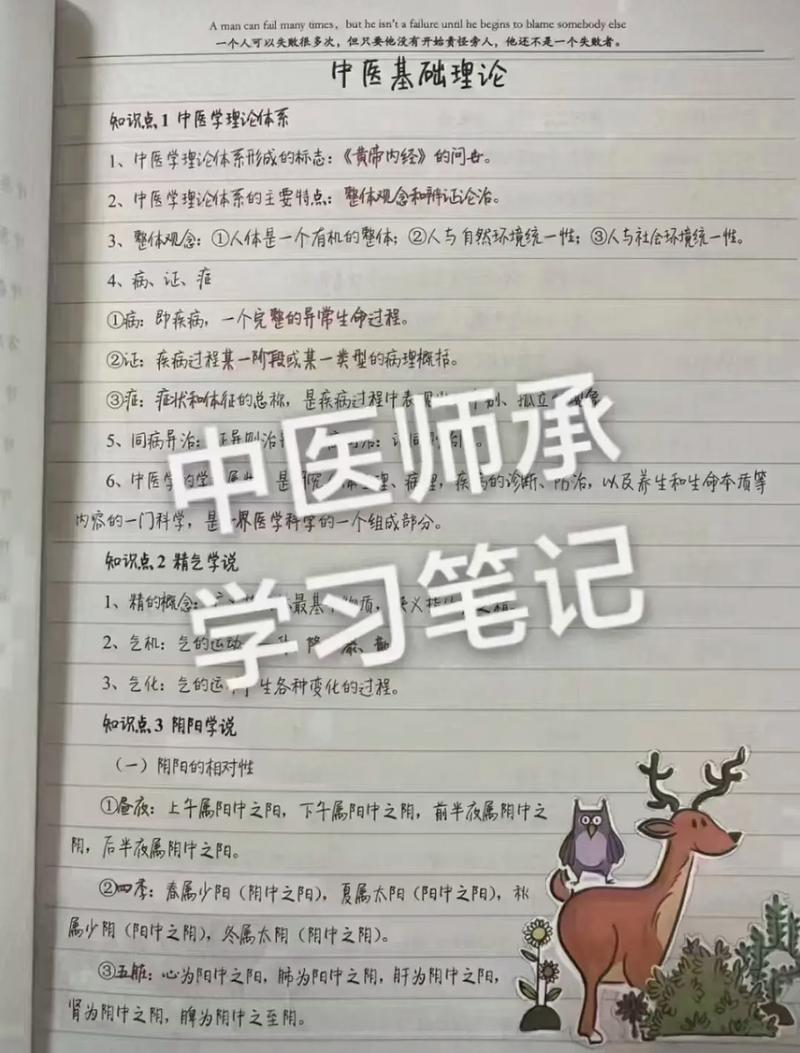 A man can fail many times, but he isn't a failure until he begins to blame somebody else
一个人可以失败很多次，但只要他没有开始责怪旁人，他还不是一个失败者。
中医基础理论
知识点1 中医学理论体系
1、中医学理论体系形成的标志：《黄帝内经》的问世。
2、中医学理论体系的主要特点：整体观念和辨证论治。
3、整体观念：①人体是一个有机的整体；②人与自然环境统一性；③人与社会环境统一性。
4、病、证、症
①病：即疾病，一个完整的异常生命过程。
②证：疾病过程某一阶段或某一类型的病理概括。
③症：症状和体征的总称，是疾病过程中表
5、同病异治：
6、中医学 是 病理，疾病的诊断、防治，以及养生和生命本质等
内容的一门科学，是 界医学科学的一个组成部分。
中医师承
学习笔记
知识点2 精气学说
1、精的概念： 最基
2、气机：气的运动
3、气化：气的运 生各种变化的过程。
知识点3 阴阳学说
（一）阴阳的相对性
①昼夜：上午属阳中之阳，下午属阳中之阴，前半夜属阴中之
阴，后半夜属阴中之阳。
②四季：春属少阳（阴中之阳），夏属太阳（阳中之阳），秋
属少阴（阳中之阴），冬属太阴（阴中之阴）。
③五脏：心为阳中之阳，肺为阳中之阴，肝为阴中之阳，
肾为阴中之阴，脾为阴中之至阴。